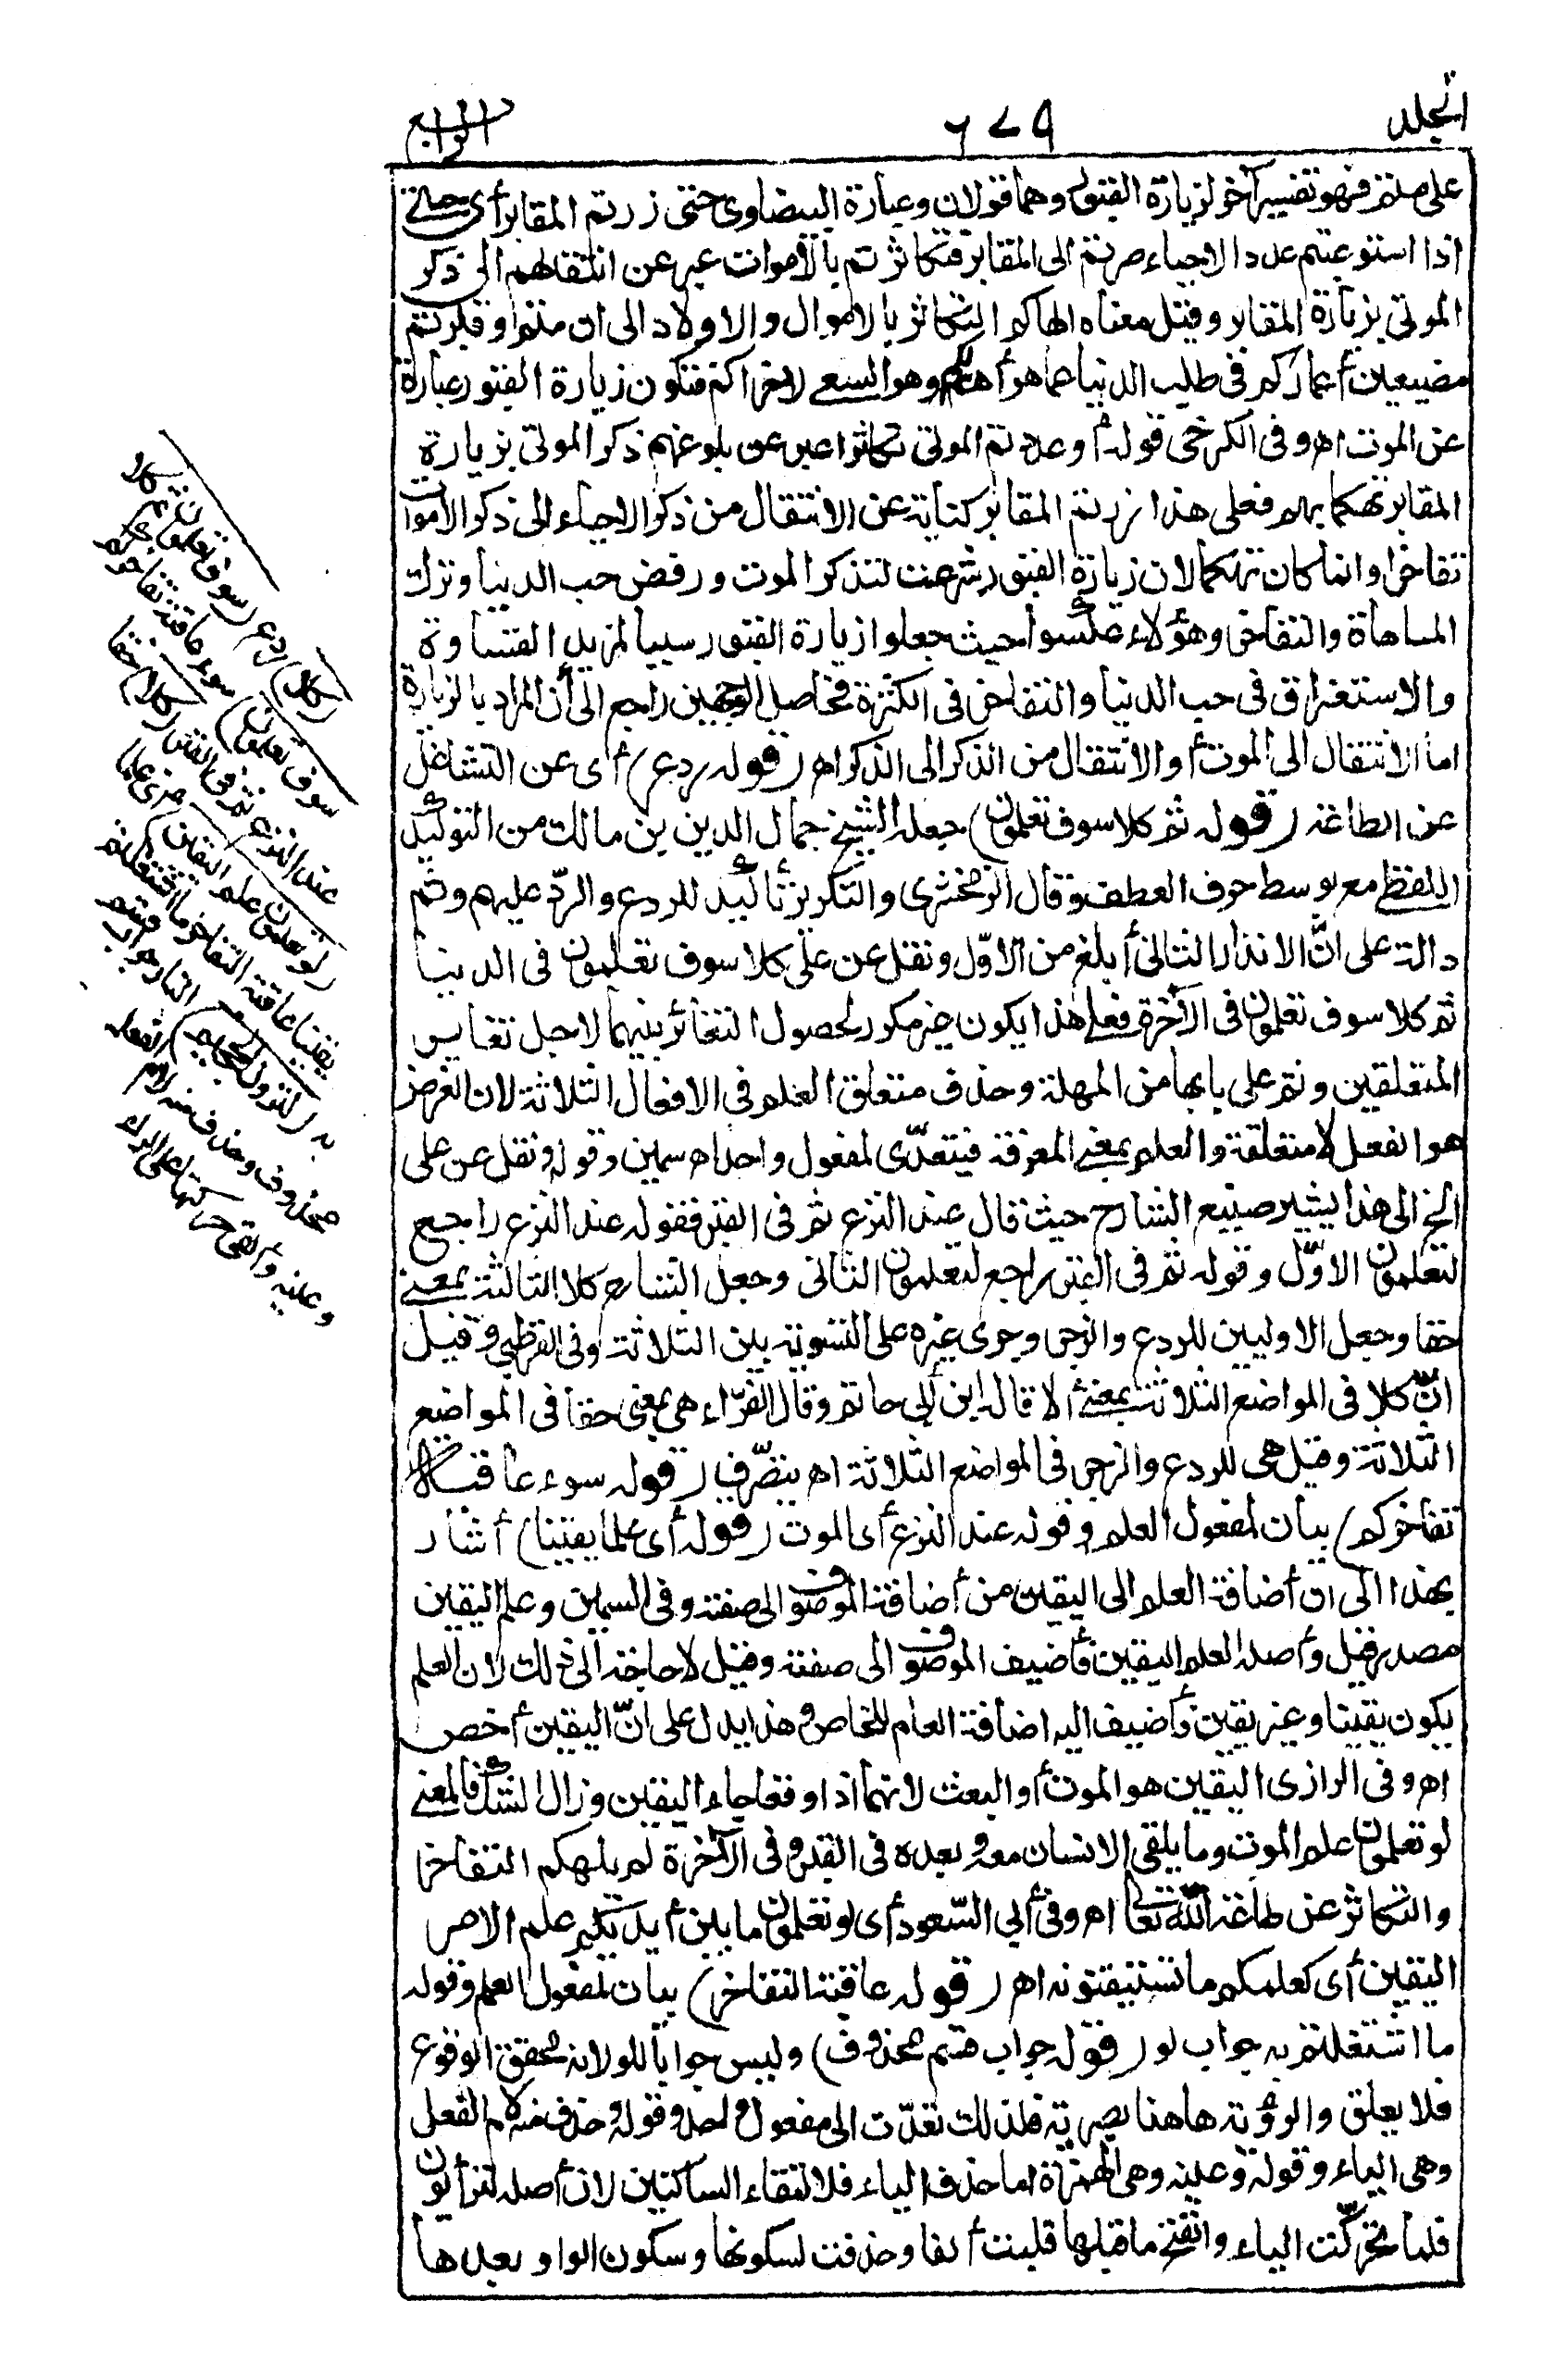 المجلد
٦٧٩
الرابع
على متم فهو تفسير آخر لزيارة القبور وهما قولان وعبارة البيضاوى حتى زرتم المقابر أى حتى
اذا استوعبتم عدد الاحياء صرتم الى المقابر فتكاثرتم بالاموات عبر عن انتقالهم الى ذكر
الموتى بزيارة المقابر وقيل معناه الهاكم التكاثر بالاموال والاولاد الى ان متم وقبرتم
مضيعين أعماركم فى طلب الدنيا عما هو أهم لكم وهو السعى لاخراكم فتكون زيارة القبور عبارة
عن الموت اه وفى الكرخى قوله أو عددتم الموتى تكاثرا عبر عن بلوغهم ذكر الموتى بزيارة
المقابر تهكما بهم فعلى هذا زرتم المقابر كناية عن الانتقال من ذكر الاحياء الى ذكر الاموات
تفاخرا وانما كان تهكما لان زيارة القبور شرعت لتذكر الموت ورفض حب الدنيا وترك
المباهاة والتفاخر وهؤلاء عكسوا حيث جعلوا زيارة القبور سببا لمزيد القساوة
والاستغراق فى حب الدنيا والتفاخر فى الكثرة فحاصل الوجهين راجع الى أن المراد بالزيارة
اما الانتقال الى الموت أو الانتقال من الذكر الى الذكر اه (قوله ردع) أى عن التشاغل
عن الطاعة (قوله ثم كلا سوف تعلمون) جعله الشيخ جمال الدين بن مالك من التوكيد
اللفظى مع توسط حرف العطف وقال الزمخشرى والتكرير تأكيد للردع والردّ عليهم وثم
دالة على انّ الانذار الثانى أبلغ من الاوّل ونقل عن على كلا سوف تعلمون فى الدنيا
ثم كلا سوف تعلمون فى الآخرة فعلى هذا يكون غير مكرر لحصول التغاير بينهما لاجل تغاير
المتعلقين وثم على بابها من المهلة وحذف متعلق العلم فى الافعال الثلاثة لان الغرض
هو الفعل لا متعلقه والعلم بمعنى المعرفة فيتعدّى لمفعول واحد اه سمين وقوله ونقل عن على
الخ الى هذا يشير صنيع الشارح حيث قال عند النزع ثم فى القبر فقوله عند النزع راجع
لتعلمون الاوّل وقوله ثم فى القبر راجع لتعلمون الثانى وجعل الشارح كلا الثالثة بمعنى
حقا وجعل الاوليين للردع والزجر وجرى غيره على التسوية بين الثلاثة وفى القرطبى وقيل
انّ كلا فى المواضع الثلاثة بمعنى ألا قاله ابن أبى حاتم وقال الفرّاء هى بمعنى حقا فى المواضع
الثلاثة وقيل هى للردع والزجر فى المواضع الثلاثة اه بتصرّف (قوله سوء عاقبة
تفاخركم) بيان لمفعول العلم وقوله عند النزع أى الموت (قوله أى علما يقينا) أشار
بهذا الى ان أضافة العلم الى اليقين من أضافة الموصوف الى صفته وفى السمين وعلم اليقين
مصدر قيل وأصله العلم اليقين فأضيف الموصوف الى صفته وقيل لا حاجة الى ذلك لان العلم
يكون يقينا وغير يقين فأضيف اليه اضافة العام للخاص وهذا يدل على انّ اليقين أخص
اه وفى الرازى اليقين هو الموت أو البعث لانهما اذا وقعا جاء اليقين وزال الشك فالمعنى
لو تعلمون علم الموت وما يلقى الانسان معه وبعده فى القبر وفى الآخرة لم يلهكم التفاخر
والتكاثر عن طاعة الله تعالى اه وفى أبى السّعود أى لو تعلمون ما بين أيديكم علم الامر
اليقين أى كعلمكم ما تستيقنونه اه (قوله عاقبة التفاخر) بيان لمفعول العلم وقوله
ما اشتغلتم به جواب لو (قوله جواب قسم محذوف) وليس جوابا للو لانه محقق الوقوع
فلا يعلق والرؤية هاهنا بصرية فلذلك تعدّت الى مفعول واحد وقوله وحذف منه لام الفعل
وهى الياء وقوله وعينه وهى الهمزة اما حذف الياء فلالتقاء الساكنين لان أصله لترأيون
فلما تحرّكت الياء وانفتح ما قبلها قلبت ألفا وحذفت لسكونها وسكون الواو بعدها
سوف تعلمون ثم كلا
(كلا) ردع
سوف تعلمون) سوء عاقبة تفاخركم
عند النزع ثم فى القبر (كلا) حقا
(لو تعلمون علم اليقين) أى علما
يقينا عاقبة التفاخر ما اشتغلتم
به (لترون الجحيم) النار جواب قسم
محذوف وحذف منه لام الفعل
وعينه وألقى حركتها على الراء